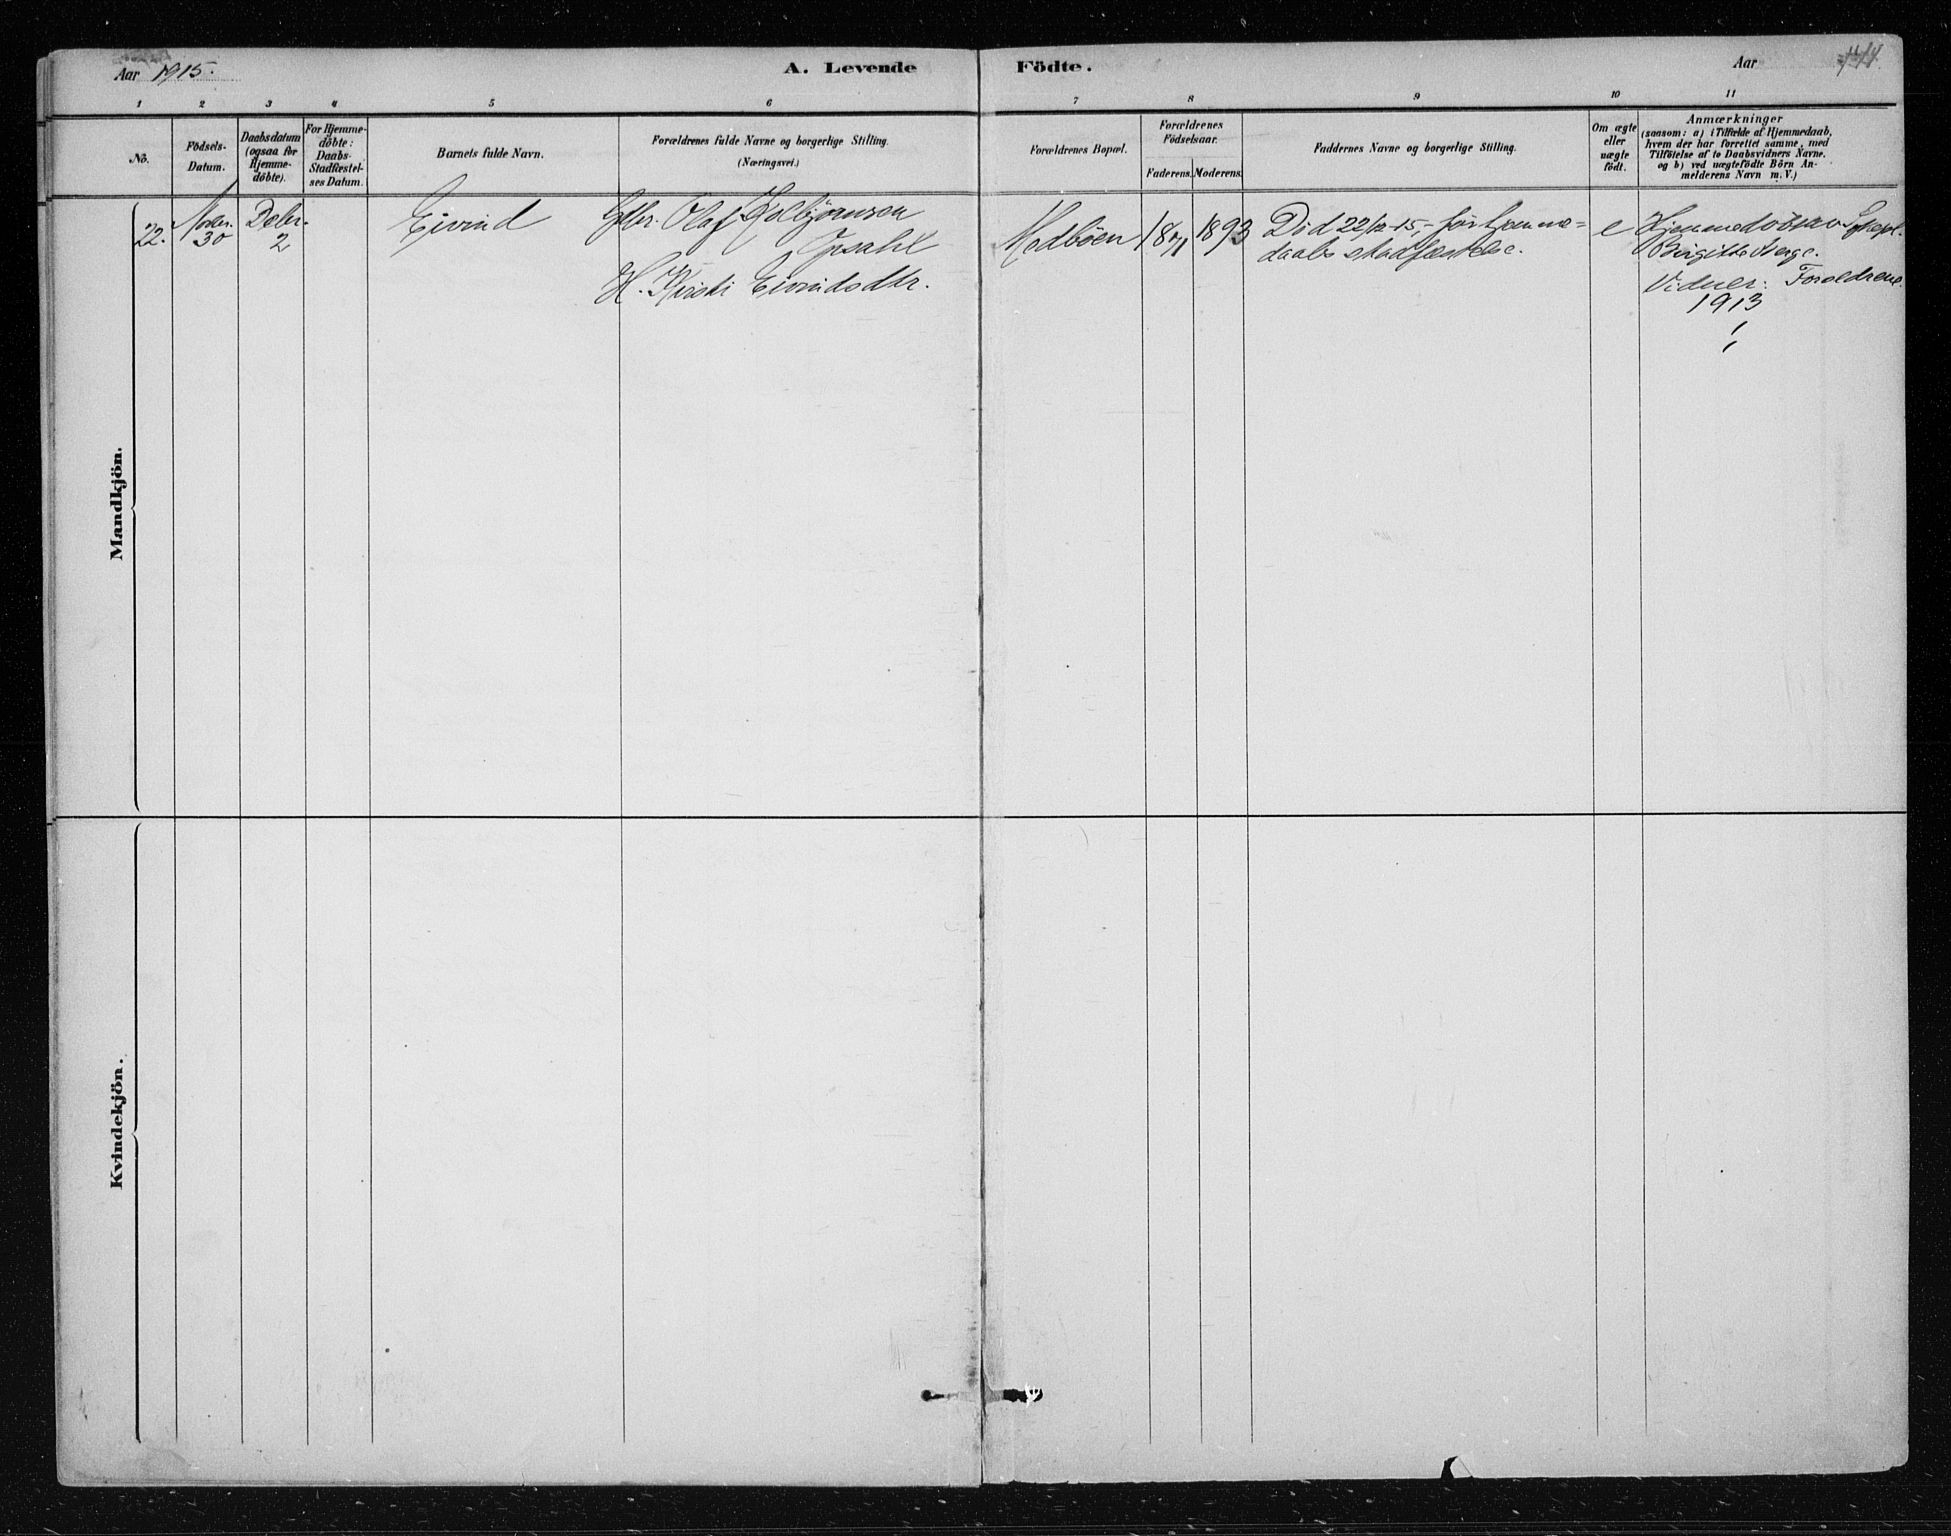 Aar 1915.
A. Levende Födte.
Aar
1 2 3 4 5 6 7 8 9 10 11
No.
Födsels-
Datum.
Daabsdatum
(ogsaa for
Hjemme-
döbte).
For Hjemme-
döbte:
Daabs-
Stadfæstel-
ses Datum.
Barnets fulde Navn.
Forældrenes fulde Navne og borgerlige Stilling.
(Næringsvei.)
Forældrenes Bopæl.
Forældrenes
Födselsaar.
Faderens. Moderens.
Faddernes Navne og borgerlige Stilling.
Om ægte
eller
uægte
födt.
Anmærkninger
(saasom: a) i Tilfælde af Hjemmedaab,
hvem der har forrettet samme, med
Tilföielse af to Daabsvidners Navne,
og b) ved uægtefödte Börn An-
melderens Navn m. V.)
Mandkjön.
22.
Novbr.
30
Debr.
2
Eivind
Gbr. Olaf Kolbjörnsen
Opsahl
H. Kirsti Eivindsdtr.
Modböen
1871
1893
Död 22/12-15,- för hjemme=
daabs stadfæstelse.
e
Hjemmedöbt av
Birgitte Berge.
Vidner: Foreldrene.
1913
Kvindekjön.